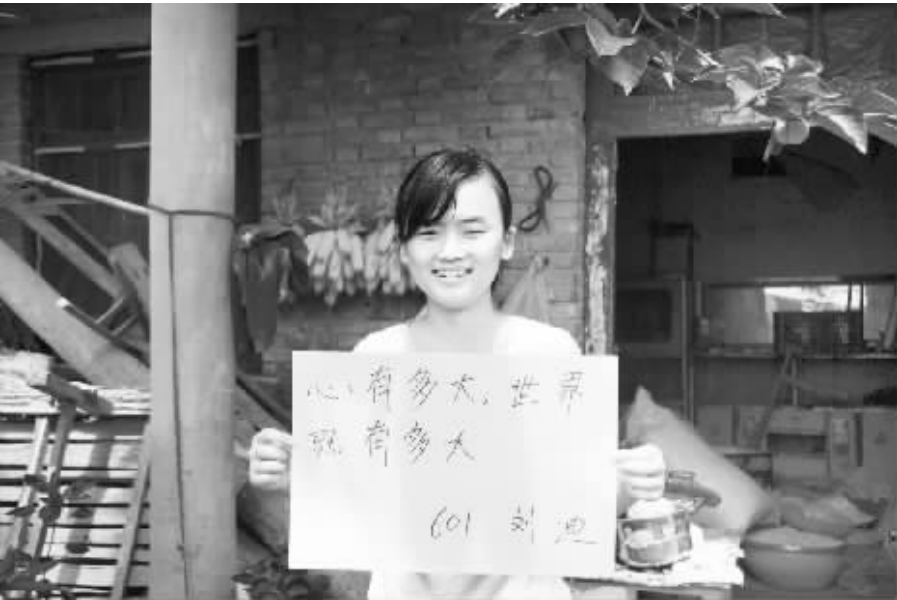 心有多大,世界
就有多大
601 刘迪